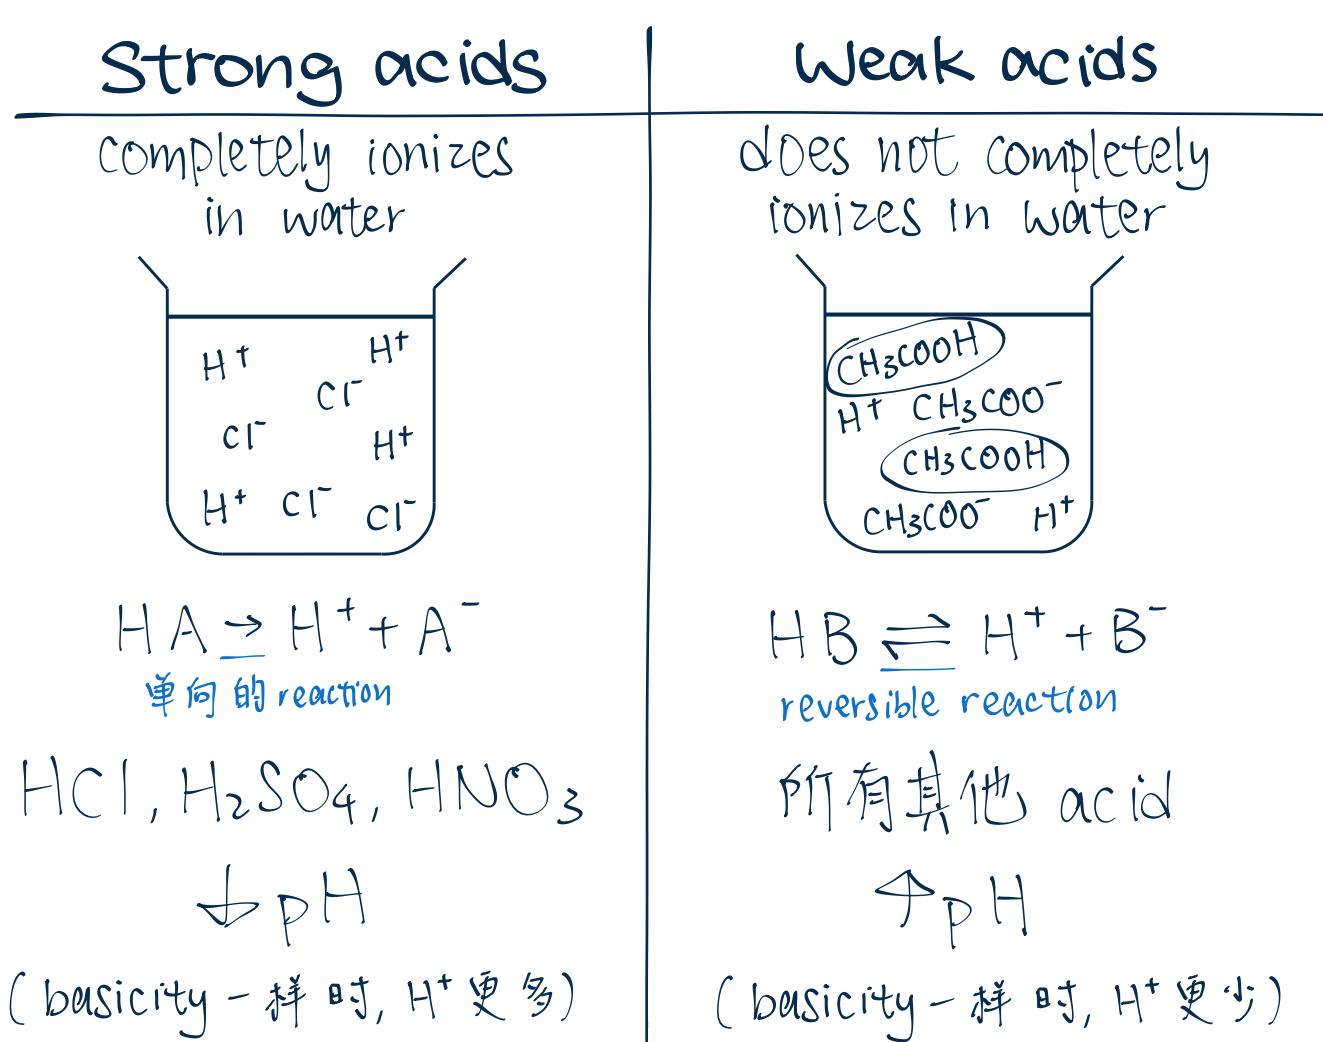 Strong acids
completely ionizes
in water
H⁺ H⁺
Cl⁻
Cl⁻ H⁺
H⁺ Cl⁻ Cl⁻
HA → H⁺ + A⁻
单向的reaction
HCl, H₂SO₄, HNO₃
↓pH
(basicity一样时, H⁺更多)
Weak acids
does not completely
ionizes in water
CH₃COOH
H⁺ CH₃COO⁻
CH₃COOH
CH₃COO⁻ H⁺
HB ⇌ H⁺ + B⁻
reversible reaction
所有其他 acid
↑pH
(basicity一样时, H⁺更少)